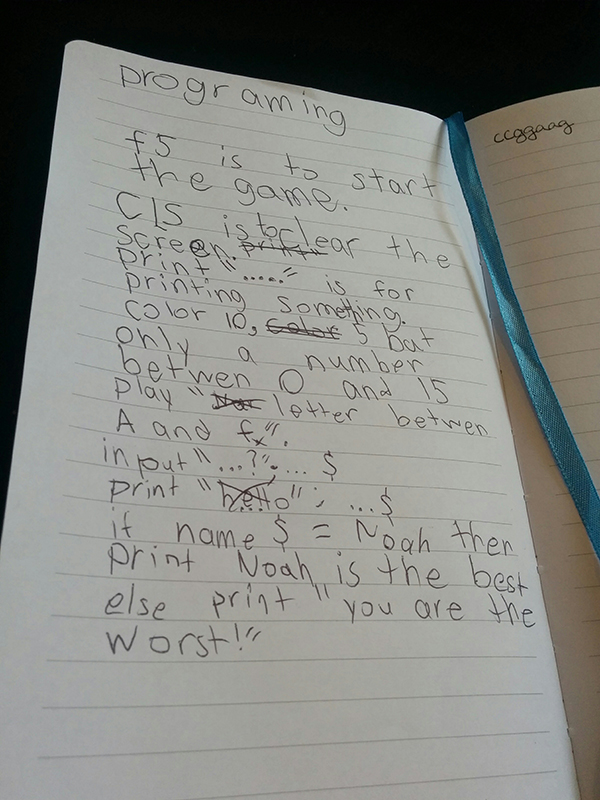 programing
f5 is to start
the game.
CLS is to clear the
screen. print
print "....." is for
printing something.
color 10, color 5 bat
only a number
betwen 0 and 15
play " letter betwen
A and f".
input "...?"; ... $
print "hello"; ...$
if name $ = Noah then
print Noah is the best
else print "you are the
worst!"
ccggaag